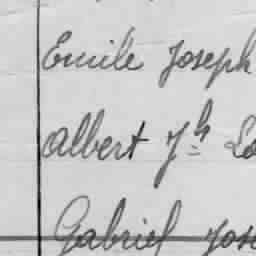 Emile Joseph
Albert Jh
Gabriel